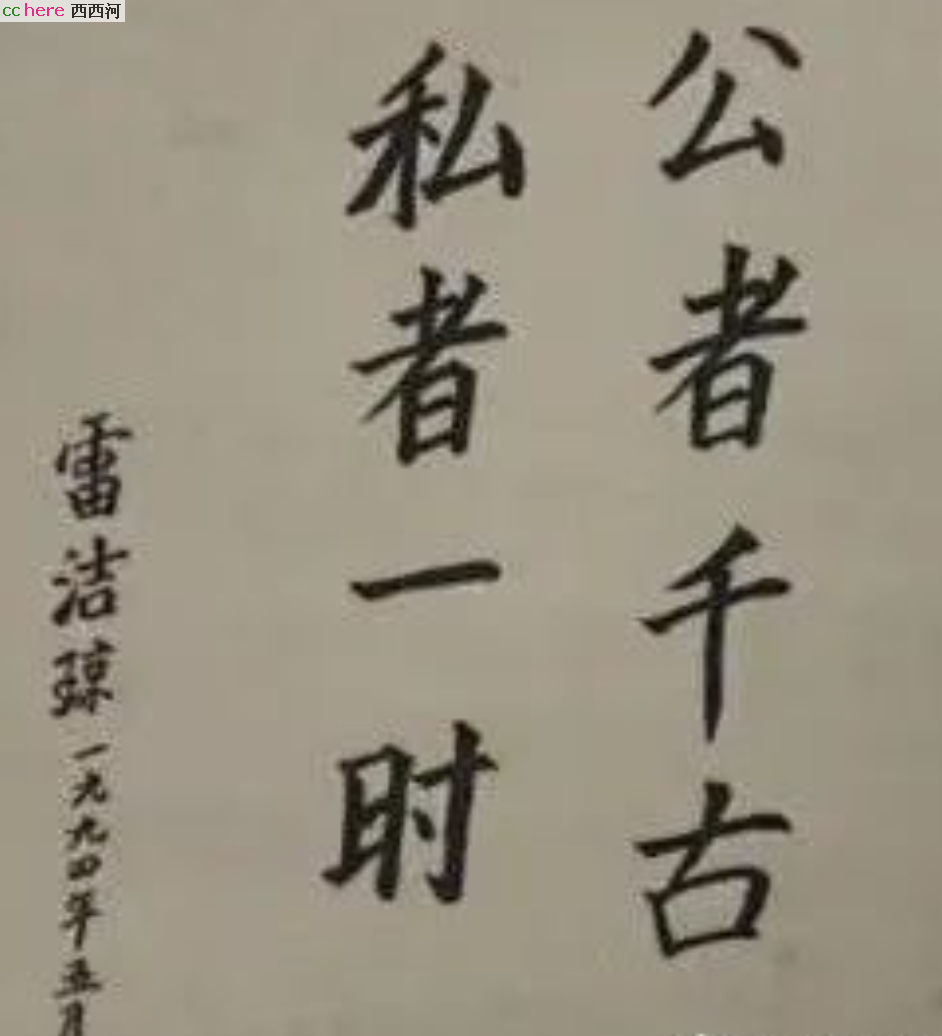 cchere 西西河
公者千古
私者一时
雷洁琼一九九四年五月